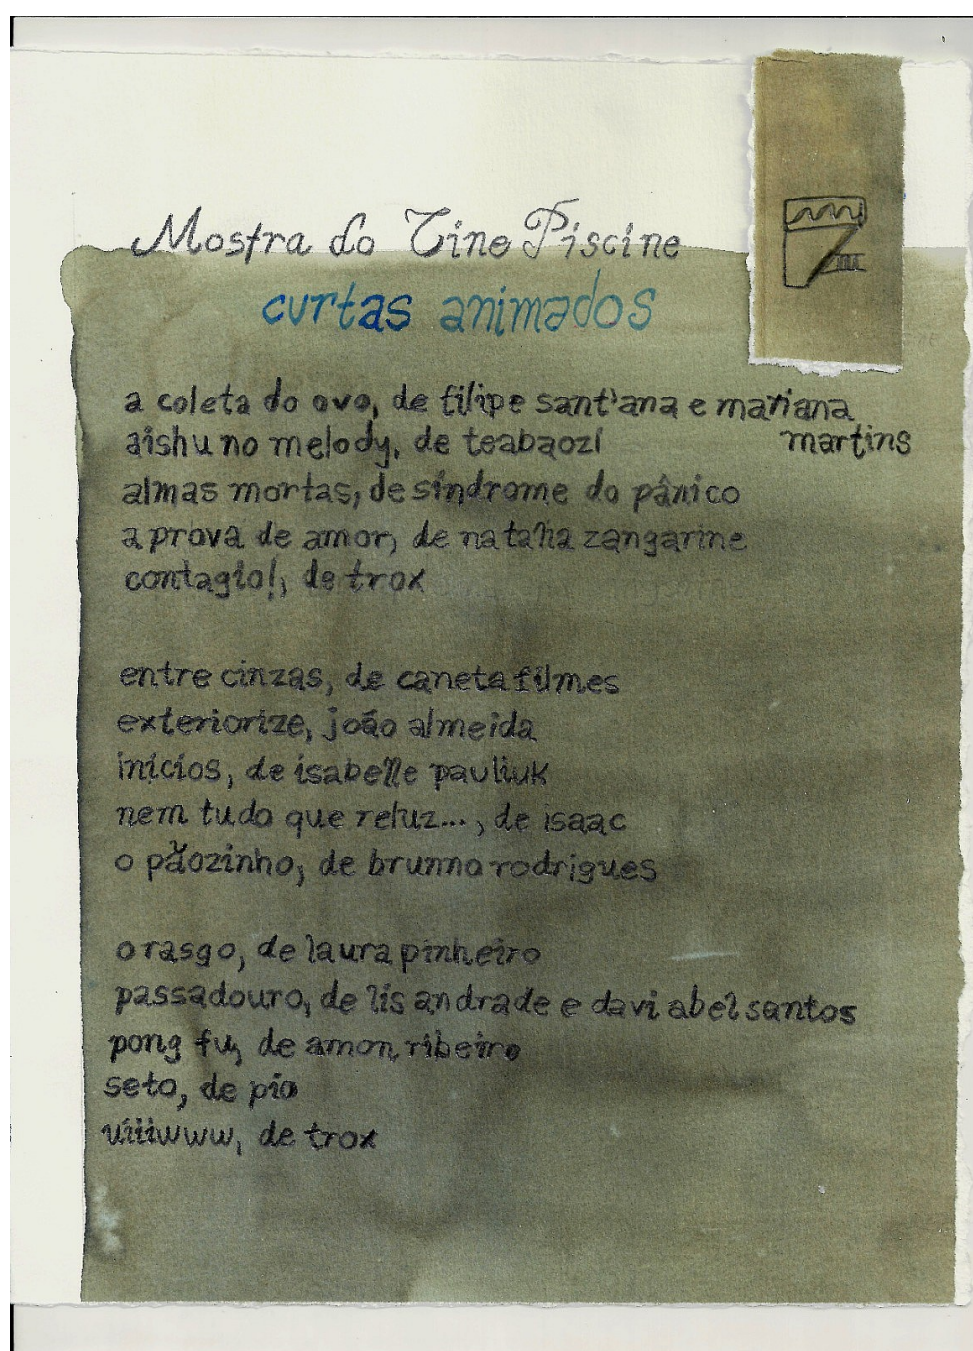 Mostra do Cine Piscine
curtas animados
a coleta do ovo, de filipe sant'ana e mariana
martins
aishu no melody, de teabaozi
almas mortas, de síndrome do pânico
a prova de amor, de natalia zangarine
contagio!, de trox
entre cinzas, de caneta filmes
exteriorize, joão almeida
inícios, de isabelle pauliuk
nem tudo que reluz..., de isaac
o pãozinho, de brunno rodrigues
o rasgo, de laura pinheiro
passadouro, de lis andrade e davi abel santos
pong fu, de amon ribeiro
seto, de pio
uiiiwww, de trox